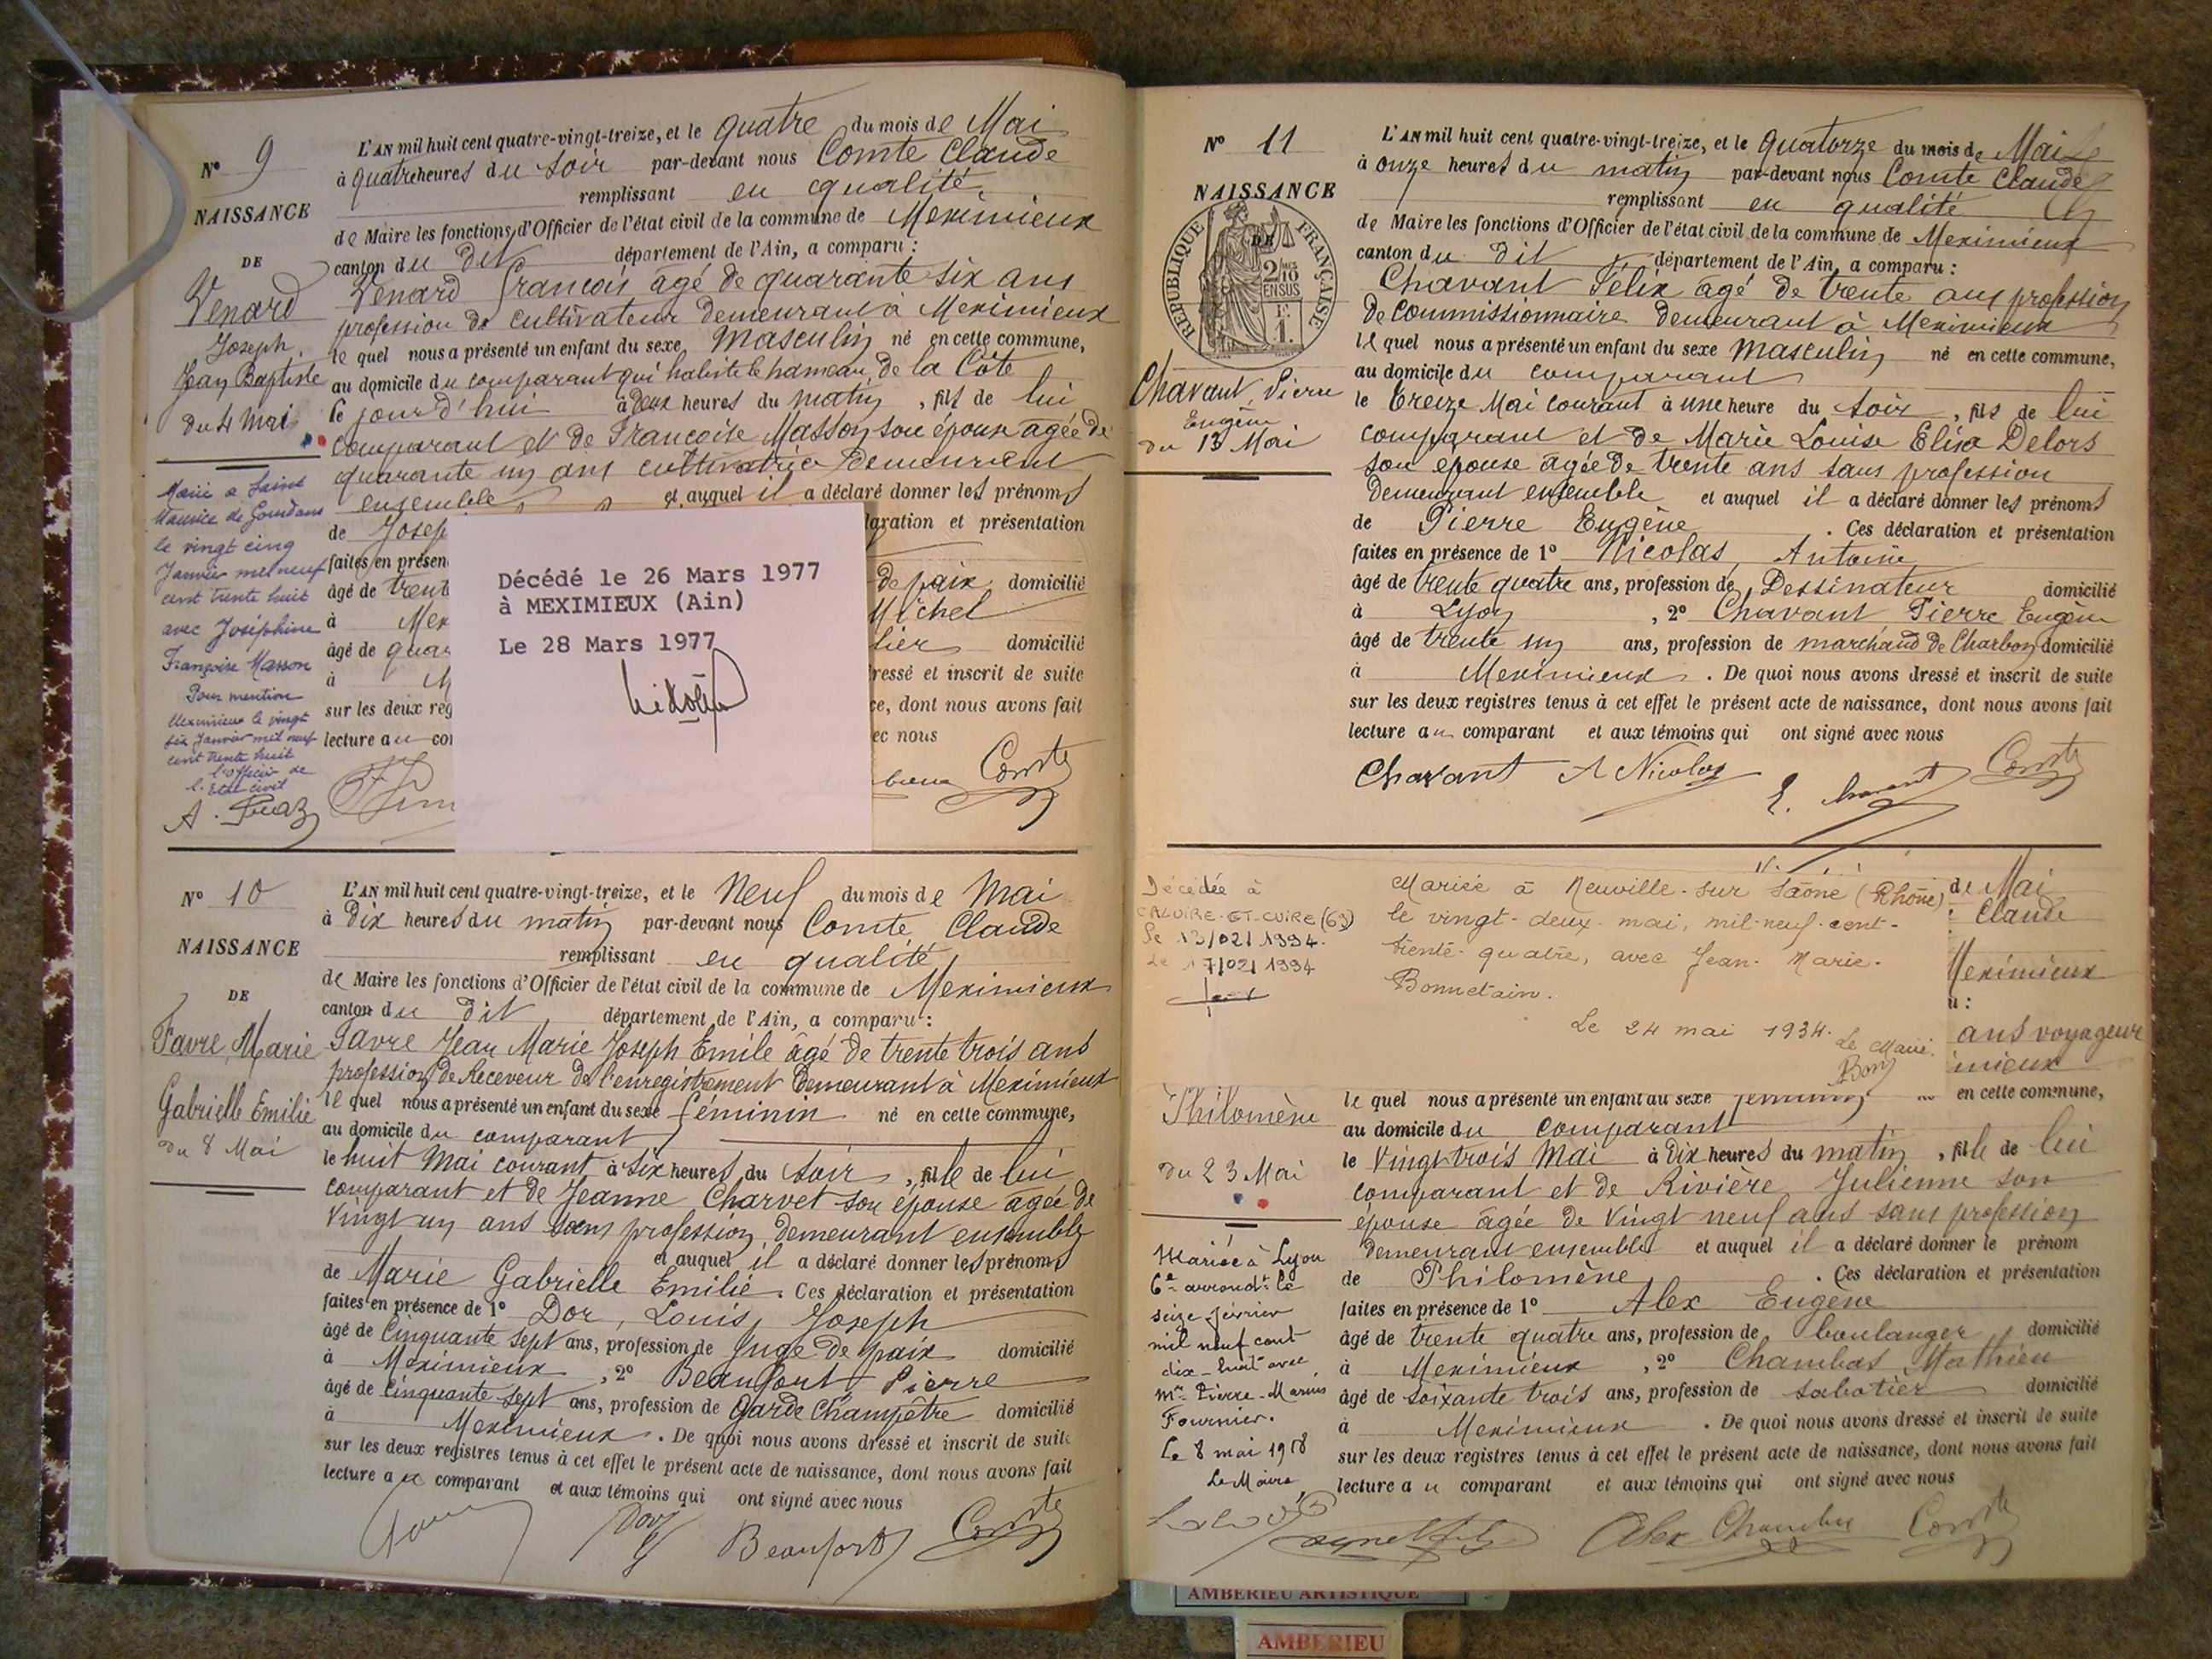 N° 9
NAISSANCE
DE
Venard
Joseph
Jean Baptiste
du 4 Mai
Marié à Saint
Maurice de Gourdans
le vingt cinq
Janvier mil neuf
cent trente huit
avec Joséphine
Françoise Masson
Pour mention
Meximieux le vingt
six Janvier mil neuf
cent trente huit
l'officier de
l'Etat civil
L'AN mil huit cent quatre-vingt-treize, et le quatre du mois de Mai
à quatre heures du soir par-devant nous Comte Claude
remplissant en qualité
de Maire les fonctions d'Officier de l'état civil de la commune de Meximieux
canton du dit département de l'Ain, a comparu :
Venard François âgé de quarante six ans
profession de cultivateur demeurant à Meximieux
lequel nous a présenté un enfant du sexe Masculin né en cette commune,
au domicile du comparant qui habite le hameau de la Côte
le jour d'hui à deux heures du matin, fils de lui
comparant et de Françoise Masson son épouse agée de
quarante un ans cultivatrice demeurant
ensemble et auquel il a déclaré donner les prénoms
de Josep
laration et présentation
faites en présen
de paix domicilié
âgé de trent
Michel
à Mex
tier domicilié
âgé de quar
ressé et inscrit de suite
à M
ce, dont nous avons fait
sur les deux reg
ec nous
lecture au co
Comte
Décédé le 26 Mars 1977
à MEXIMIEUX (Ain)
Le 28 Mars 1977
N° 10
NAISSANCE
DE
Favre, Marie
Gabrielle Emilie
du 8 Mai
L'AN mil huit cent quatre-vingt-treize, et le Neuf du mois de Mai
à Dix heures du matin par-devant nous Comte Claude
remplissant en qualité
de Maire les fonctions d'Officier de l'état civil de la commune de Meximieux
canton du dit département de l'Ain, a comparu :
Favre Jean Marie Joseph Emile âgé de trente trois ans
profession de Receveur de l'enregistrement demeurant à Meximieux
lequel nous a présenté un enfant du sexe féminin né en cette commune,
au domicile du comparant
le huit Mai courant à six heures du soir, fille de lui
comparant et de Jeanne Charvet son épouse agée de
vingt un ans sans profession demeurant ensemble
et auquel il a déclaré donner les prénoms
de Marie Gabrielle Emilie. Ces déclaration et présentation
faites en présence de 1° Dor, Louis, Joseph
âgé de Cinquante sept ans, profession de Juge de paix domicilié
à Meximieux, 2° Beaufort Pierre
âgé de Cinquante sept ans, profession de Garde Champêtre domicilié
à Meximieux. De quoi nous avons dressé et inscrit de suite
sur les deux registres tenus à cet effet le présent acte de naissance, dont nous avons fait
lecture au comparant et aux témoins qui ont signé avec nous
Beaufort Comte
N° 11
NAISSANCE
DE
RÉPUBLIQUE FRANÇAISE
2/10 EN SUS
Chavant, Pierre
Eugène
du 13 Mai
L'AN mil huit cent quatre-vingt-treize, et le Quatorze du mois de Mai
à onze heures du matin par-devant nous Comte Claude
remplissant en qualité
de Maire les fonctions d'Officier de l'état civil de la commune de Meximieux
canton du dit département de l'Ain, a comparu :
Chavant Félix âgé de trente ans profession
de Commissionnaire demeurant à Meximieux
lequel nous a présenté un enfant du sexe masculin né en cette commune,
au domicile du comparant
le treize Mai courant à une heure du soir, fils de lui
comparant et de Marie Louise Elisa Delors
son épouse âgée de trente ans sans profession
demeurant ensemble et auquel il a déclaré donner les prénoms
de Pierre Eugène. Ces déclaration et présentation
faites en présence de 1° Nicolas, Antoine
âgé de trente quatre ans, profession de Dessinateur domicilié
à Lyon, 2° Chavant Pierre Eugène
âgé de trente un ans, profession de marchand de Charbon domicilié
à Meximieux. De quoi nous avons dressé et inscrit de suite
sur les deux registres tenus à cet effet le présent acte de naissance, dont nous avons fait
lecture au comparant et aux témoins qui ont signé avec nous
Chavant A Nicolas E. Chavant Comte
Décédée à
CALUIRE-ET-CUIRE (69)
le 13/02/1994.
Le 17/02/1994
Mariée à Neuville-sur Saône (Rhône)
le vingt-deux mai, mil-neuf-cent-
trente-quatre, avec Jean-Marie-
Bonnetain.
Le 24 mai 1934. Le Maire.
de Mai
Claude
Meximieux
u :
ans voyageur
imieux
Philomène
du 23 Mai
Mariée à Lyon
6e arrondt le
seize février
mil neuf cent
dix-huit avec
Mr Pierre-Marius
Fournier.
Le 8 mai 1918
Le Maire,
lequel nous a présenté un enfant du sexe féminin né en cette commune,
au domicile du comparant
le Vingt trois Mai à dix heures du matin, fille de lui
comparant et de Rivière Julienne son
épouse âgée de vingt neuf ans sans profession
demeurant ensemble et auquel il a déclaré donner le prénom
de Philomène. Ces déclaration et présentation
faites en présence de 1° Alex Eugène
âgé de trente quatre ans, profession de boulanger domicilié
à Meximieux, 2° Chambas Mathieu
âgé de soixante trois ans, profession de sabotier domicilié
à Meximieux. De quoi nous avons dressé et inscrit de suite
sur les deux registres tenus à cet effet le présent acte de naissance, dont nous avons fait
lecture au comparant et aux témoins qui ont signé avec nous
Alex Comte
AMBERIEU ARTISTIQUE
AMBERIEU